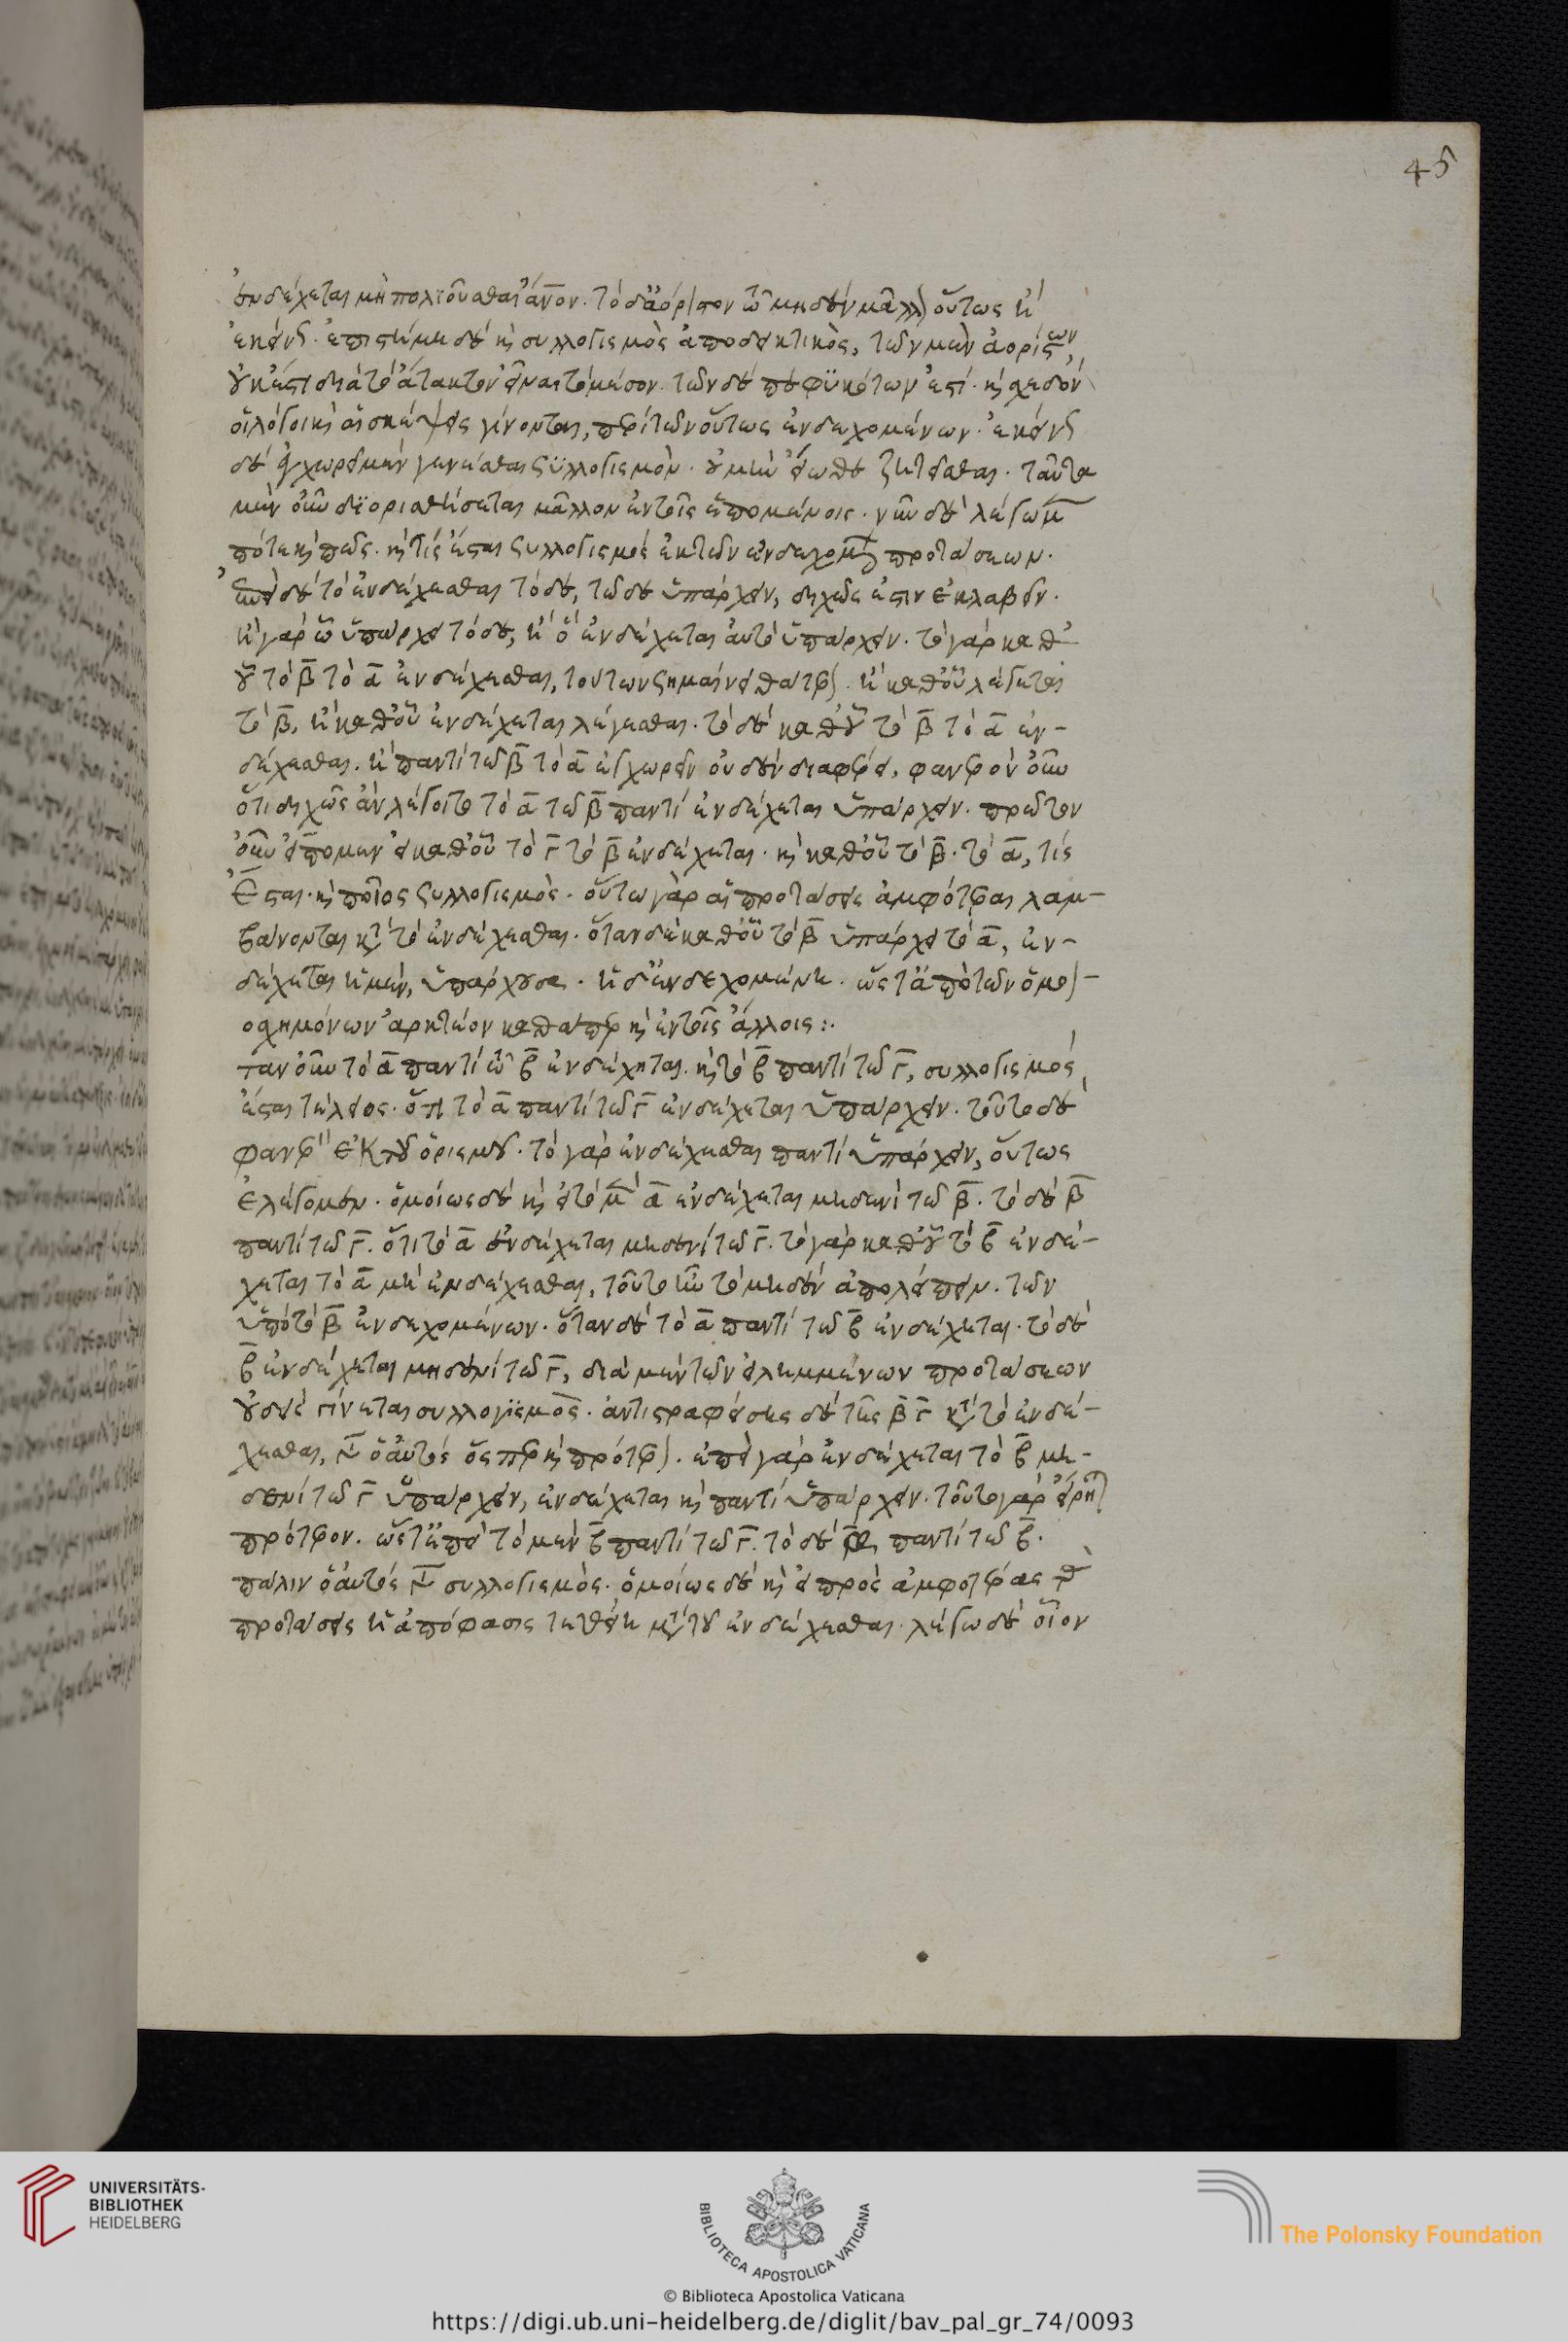 ἐνδέχεται μὴ πολιοῦσθαι ἄνον. τὸ δ' ἀόριστον τῶ μηδὲν μᾶλλον οὕτως ἢ
ἐκείνως. ἐπιστήμη δὲ καὶ συλλογισμὸς ἀποδεικτικὸς, τῶν μὲν ἀορίστων,
οὐκ ἔστι διὰ τὸ ἄτακτον εἶναι τὸ μέσον. τῶν δὲ πεφυκότων ἐστί. καὶ σχεδὸν
οἱ λόγοι καὶ αἱ σκέψεις γίνονται, περὶ τῶν οὕτως ἐνδεχομένων. ἐκείνως
δὲ ἐγχωρεῖ μὲν γενέσθαι συλλογισμὸν. οὐ μὴν εἴωθε ζητεῖσθαι. ταῦτα
μὲν οὖν διορισθήσεται μᾶλλον ἐν τοῖς ἑπομένοις. νῦν δὲ λέγωμεν
πότε καὶ πῶς. καὶ τίς ἔσται συλλογισμὸς ἐκ τῶν ἐνδεχομένων προτάσεων.
ἐπεὶ δὲ τὸ ἐνδέχεσθαι τόδε, τῶδε ὑπάρχειν, διχῶς ἔστιν ἐκλαβεῖν.
ἢ γὰρ ὧ ὑπάρχει τόδε, ἢ ὧ ἐνδέχεται αὐτὸ ὑπάρχειν. τὸ γὰρ καθ'
οὗ τὸ β̄ τὸ ᾱ ἐνδέχεσθαι, τούτων σημαίνει θάτερον. ἢ καθ' οὗ λέγεται
τὸ β̄, ἢ καθ' οὗ ἐνδέχεται λέγεσθαι. τὸ δὲ καθ' οὗ τὸ β̄ τὸ ᾱ ἐν-
δέχεσθαι. ἢ παντὶ τῶ β̄ τὸ ᾱ ἐγχωρεῖν οὐδὲν διαφέρει. φανερὸν οὖν
ὅτι διχῶς ἂν λέγοιτο τὸ ᾱ τῶ β̄ παντὶ ἐνδέχεται ὑπάρχειν. πρῶτον
οὖν εἴπομεν εἰ καθ' οὗ τὸ γ̄ τὸ β̄ ἐνδέχεται. καὶ καθ' οὗ τὸ β̄. τὸ ᾱ, τίς
ἔσται. καὶ ποῖος συλλογισμὸς. οὕτω γὰρ αἱ προτάσεις ἀμφότεραι λαμ-
βάνονται κατὰ τὸ ἐνδέχεσθαι. ὅταν δὲ καθ' οὗ τὸ β̄ ὑπάρχει τὸ ᾱ, ἐν-
δέχεται ἡ μὲν, ὑπάρχουσα. ἡ δ' ἐνδεχομένη. ὥστ' ἀπὸ τῶν ὁμοι-
οσχημόνων ἀρκτέον καθάπερ καὶ ἐν τοῖς ἄλλοις:.
ταν οὖν τὸ ᾱ παντὶ τῶ β̄ ἐνδέχηται. καὶ τὸ β̄ παντὶ τῶ γ̄, συλλογισμὸς
ἔσται τέλειος. ὅτι τὸ ᾱ παντὶ τῶ γ̄ ἐνδέχεται ὑπάρχειν. τοῦτο δὲ
φανερὸν ἐκ τοῦ ὁρισμοῦ. τὸ γὰρ ἐνδέχεσθαι παντὶ ὑπάρχειν, οὕτως
ἐλέγομεν. ὁμοίως δὲ καὶ εἰ τὸ μὲν ᾱ ἐνδέχεται μηδενὶ τῶ β̄. τὸ δὲ β̄
παντὶ τῶ γ̄. ὅτι τὸ ᾱ ἐνδέχεται μηδενὶ τῶ γ̄. τὸ γὰρ καθ' οὗ τὸ β̄ ἐνδέ-
χεται τὸ ᾱ μὴ ἐνδέχεσθαι, τοῦτο ἦν τὸ μηδὲν ἀπολείπειν. τῶν
ὑπὸ τὸ β̄ ἐνδεχομένων. ὅταν δὲ τὸ ᾱ παντὶ τῶ β̄ ἐνδέχηται. τὸ δὲ
β̄ ἐνδέχεται μηδενὶ τῶ γ̄, διὰ μὲν τῶν εἰλημμένων προτάσεων
οὐδεὶς γίνεται συλλογισμὸς. ἀντιστραφείσης δὲ τῆς β̄ γ̄ κατὰ τὸ ἐνδέ-
χεσθαι, γίνεται ὁ αὐτὸς ὅσπερ καὶ πρότερον. ἐπεὶ γὰρ ἐνδέχεται τὸ β̄ μη-
δενὶ τῶ γ̄ ὑπάρχειν, ἐνδέχεται καὶ παντὶ ὑπάρχειν. τοῦτο γὰρ εἴρηται
πρότερον. ὥστ' ἐπεὶ τὸ μὲν β̄ παντὶ τῶ γ̄. τὸ δὲ ᾱ παντὶ τῶ β̄.
πάλιν ὁ αὐτὸς γίνεται συλλογισμὸς. ὁμοίως δὲ καὶ εἰ πρὸς ἀμφοτέρας τὰς
προτάσεις ἡ ἀπόφασις τεθείη μετὰ τοῦ ἐνδέχεσθαι. λέγω δὲ οἷον
45
UNIVERSITÄTS-
BIBLIOTHEK
HEIDELBERG
BIBLIOTECA APOSTOLICA VATICANA
The Polonsky Foundation
© Biblioteca Apostolica Vaticana
https://digi.ub.uni-heidelberg.de/diglit/bav_pal_gr_74/0093